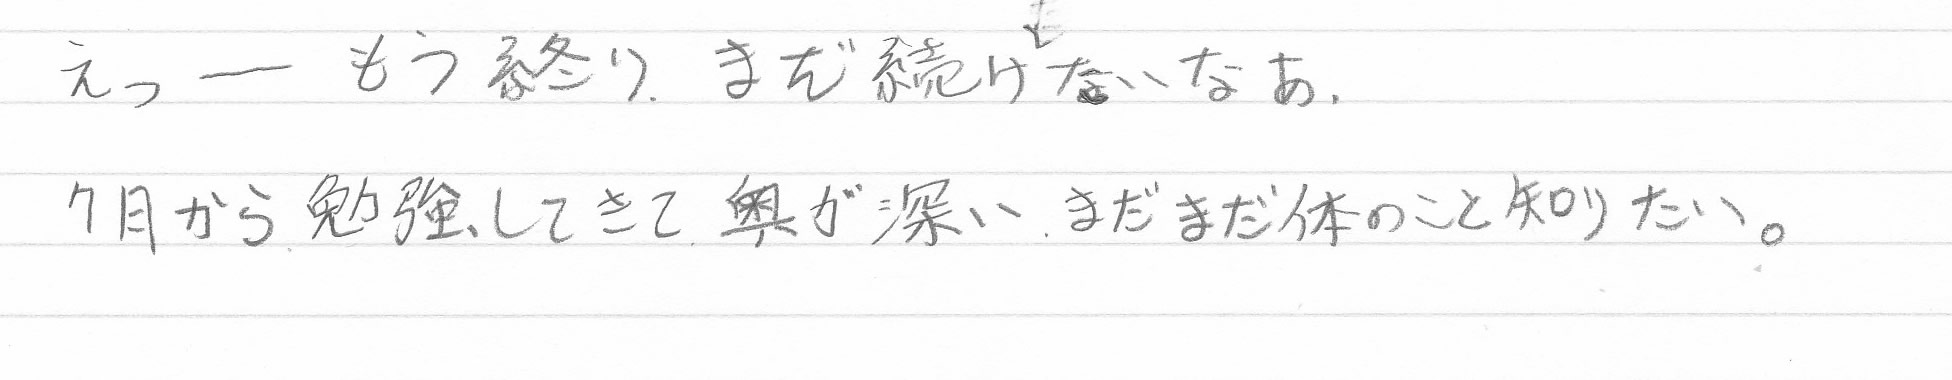 えっー もう終り. まだ続けたいなあ.
7月から勉強してきて 奥が深い. まだまだ体のこと知りたい。